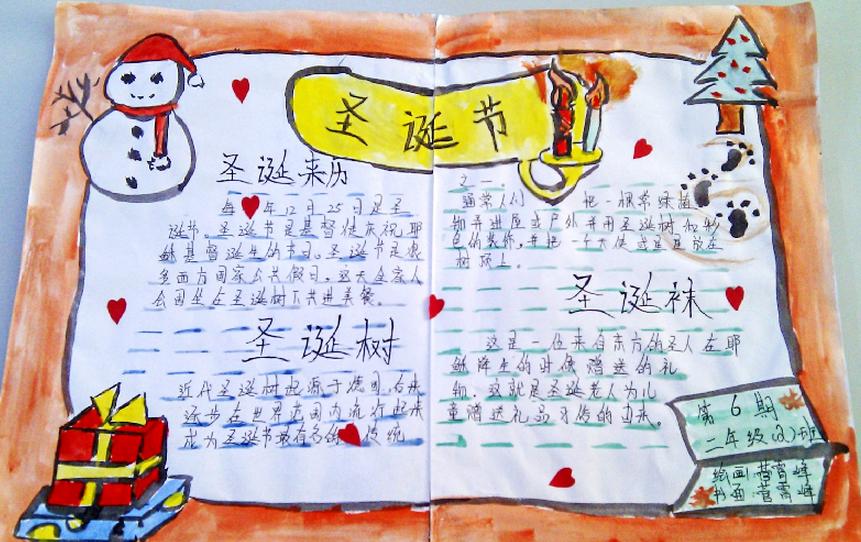 圣诞节
圣诞来历
每年12月25日是圣
诞节。圣诞节是基督徒庆祝耶
稣基督诞生的节日。圣诞节是很
多西方国家公共假日。这天全家人
会围坐在圣诞树下共进美餐。
圣诞树
近代圣诞树起源于德国,后来
逐步在世界范围内流行起来
成为圣诞节最有名的传统
之一。
通常人们 把一棵常绿植
物弄进屋或户外并用圣诞树
色的装饰,并把一个天使
树顶上。
圣诞袜
这是一位来自东方的圣人在耶
稣降生的时候赠送的礼
物,这就是圣诞老人为儿
童赠送礼品习俗的由来。
第6期
二年级(2)班
绘画:霄峰
书画:霄峰